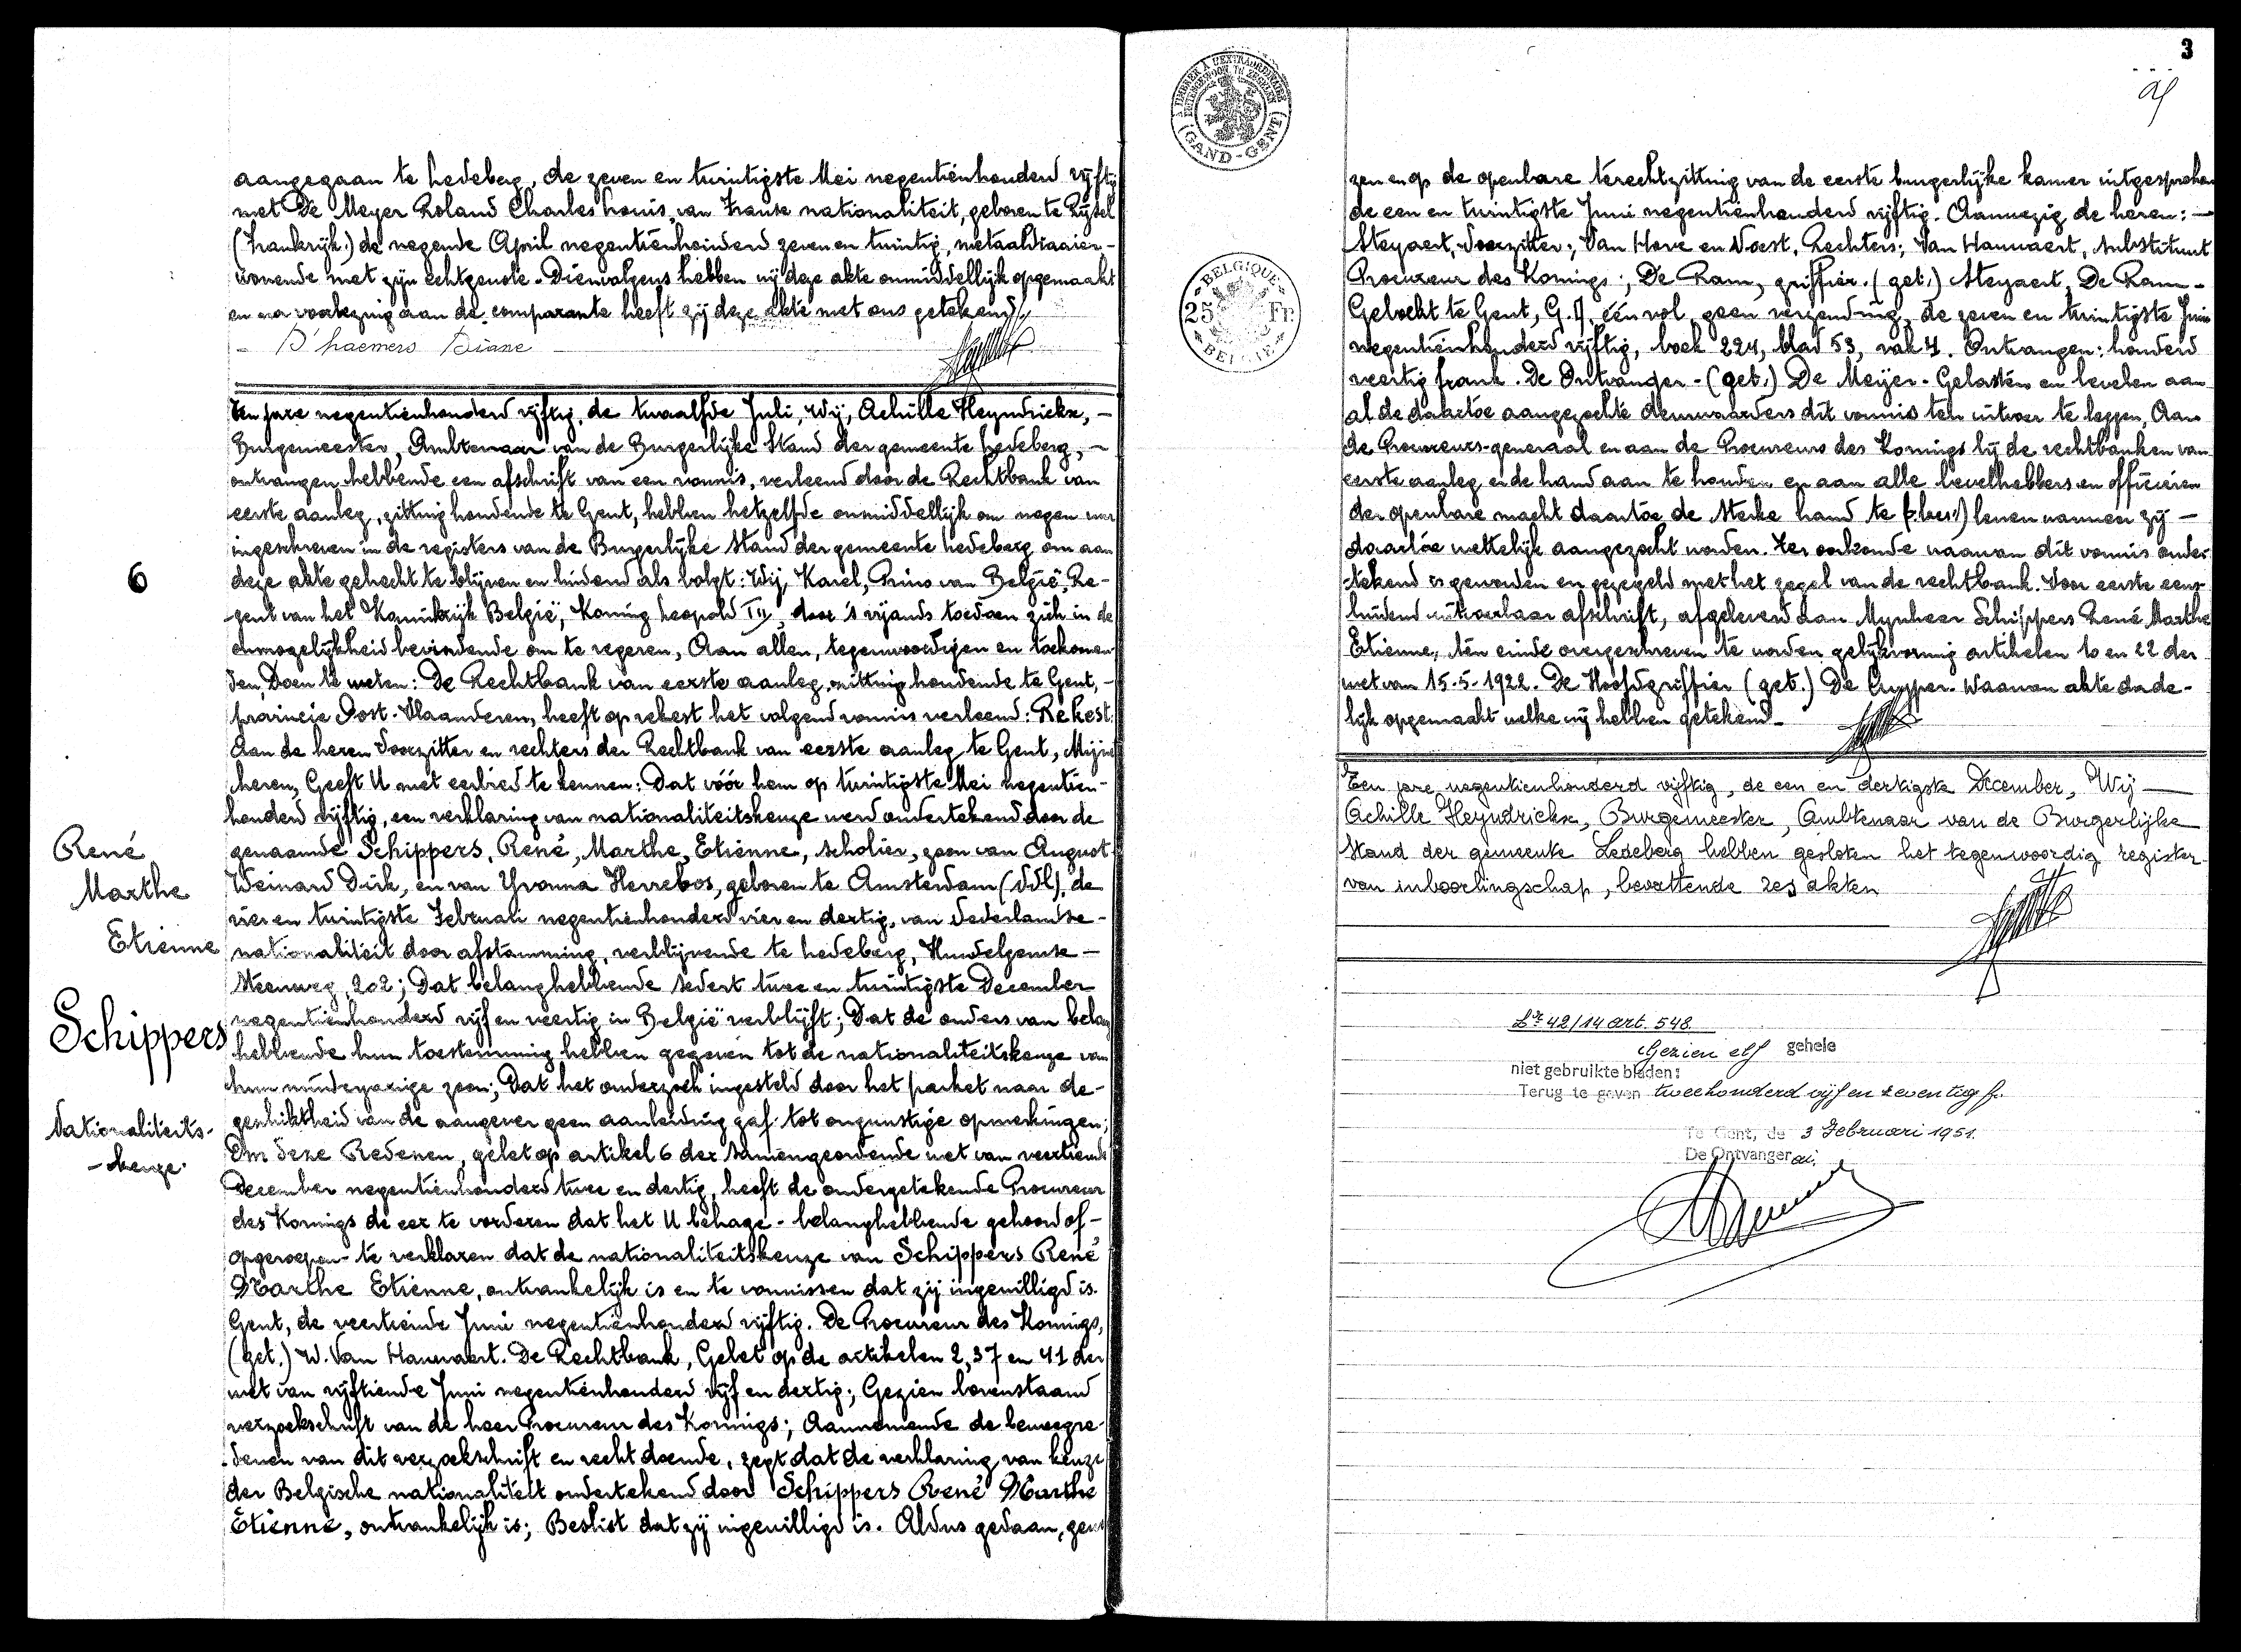 aangegaan te Ledeberg, de zeven en twintigste Mei negentienhonderd vijftig
met De Meyer Roland Charles Louis, van Franse nationaliteit, geboren te Rijsel
(Frankrijk) de negende April negentienhonderd zeven en twintig, metaaldraaier-
wonende met zijn echtgenote. Dienvolgens hebben wij deze akte onmiddellijk opgemaakt
en na voorlezing aan de comparante heeft zij deze akte met ons getekend.
- D'haemers Diane
Ten jare negentienhonderd vijftig, de twaalfde Juli, Wij, Achille Heyndrickx, -
Burgemeester, Ambtenaar van de Burgerlijke Stand der gemeente Ledeberg, -
ontvangen hebbende een afschrift van een vonnis, verleend door de Rechtbank van
eerste aanleg, zitting houdende te Gent, hebben hetzelfde onmiddellijk om negen uur
ingeschreven in de registers van de Burgerlijke Stand der gemeente Ledeberg om aan
6
deze akte gehecht te blijven en luidend als volgt: Wij, Karel, Prins van België, Re-
gent van het Koninkrijk België, Koning Leopold III, door 's vijands toedoen zich in de
onmogelijkheid bevindende om te regeren, Aan allen, tegenwoordigen en toekomen-
den Doen te weten: De Rechtbank van eerste aanleg, zitting houdende te Gent, -
provincie Oost-Vlaanderen, heeft op rekest het volgend vonnis verleend: Rekest.
Aan de heren Voorzitter en rechters der Rechtbank van eerste aanleg te Gent, Mijne
heren, Geeft U met eerbied te kennen: Dat vóór hem op twintigste Mei negentien-
honderd vijftig, een verklaring van nationaliteitskeuze werd ondertekend door de
genaamde Schippers, René, Marthe, Etienne, scholier, zoon van August
Weinard Dirk, en van Yvonna Herrebos, geboren te Amsterdam (Ndl), de
vier en twintigste Februari negentienhonderd vier en dertig, van Nederlandse-
nationaliteit door afstamming, verblijvende te Ledeberg, Hundelgemse-
steenweg, 202; Dat belanghebbende sedert twee en twintigste December
negentienhonderd vijf en veertig in België verblijft; Dat de ouders van belang
hebbende hun toestemming hebben gegeven tot de nationaliteitskeuze van
hun minderjarige zoon; Dat het onderzoek ingesteld door het parket naar de-
geschiktheid van de aangever geen aanleiding gaf tot ongunstige opmerkingen;
Om deze Redenen, gelet op artikel 6 der samengeordende wet van veertiende
December negentienhonderd twee en dertig, heeft de ondergetekende Procureur
des Konings de eer te vorderen dat het U behage - belanghebbende gehoord of -
opgeroepen - te verklaren dat de nationaliteitskeuze van Schippers René
Marthe Etienne, ontvankelijk is en te vonnissen dat zij ingewilligd is.
Gent, de veertiende Juni negentienhonderd vijftig. De Procureur des Konings,
(get.) W. Van Hauwaert. De Rechtbank, Gelet op de artikelen 2, 37 en 41 der
wet van vijftiende Juni negentienhonderd vijf en dertig; Gezien bovenstaand
verzoekschrift van de heer Procureur des Konings; Aannemende de beweegre-
denen van dit verzoekschrift en recht doende, zegt dat de verklaring van keuze
der Belgische nationaliteit ondertekend door Schippers René Marthe
Etienne, ontvankelijk is; Beslist dat zij ingewilligd is. Aldus gedaan,
René
Marthe
Etienne
Schippers
Nationaliteits-
- keuze.
3
GAND - GENT
BELGIQUE
25 Fr.
BELGIE
zen en op de openbare terechtzitting van de eerste burgerlijke kamer uitgesproken
de een en twintigste Juni negentienhonderd vijftig. Aanwezig de heren: -
Steyaert, Voorzitter; Van Hove en Voest, Rechters; Van Hauwaert, Substituut
Procureur des Konings; De Ram, griffier. (get.) Steyaert, De Ram -
Geboekt te Gent, G.A, één rol, geen verzending, de zeven en twintigste Juni
negentienhonderd vijftig, boek 224, blad 53, vak 4. Ontvangen: honderd
veertig frank. De Ontvanger - (get.) De Meijer - Gelasten en bevelen aan
al de daartoe aangezochte deurwaarders dit vonnis ten uitvoer te leggen, Aan
de Procureurs-generaal en aan de Procureurs des Konings bij de rechtbanken van
eerste aanleg er de hand aan te houden en aan alle bevelhebbers en officieren
der openbare macht daartoe de sterke hand te lenen wanneer zij -
daartoe wettelijk aangezocht worden. Ter oorkonde waarvan dit vonnis onder-
tekend is geworden en gezegeld met het zegel van de rechtbank. Voor eerste eens-
luidend uitvoerbaar afschrift, afgeleverd aan Mijnheer Schippers René Marthe
Etienne, ten einde overgeschreven te worden gelijkvormig artikelen 10 en 22 der
wet van 15-5-1922. De Hoofdgriffier (get.) De Cuyper. Waarvan akte dade-
lijk opgemaakt welke wij hebben getekend -
Ten jare negentienhonderd vijftig, de een en dertigste December, Wij -
Achille Heyndrickx, Burgemeester, Ambtenaar van de Burgerlijke
Stand der gemeente Ledeberg hebben gesloten het tegenwoordig register-
van inboorlingschap, bevattende zes akten
42/14 art. 548.
Gezien elf gehele
niet gebruikte bladen:
Terug te geven tweehonderd vijf en zeventig fr.
Te Gent, de 3 Februari 1951.
De Ontvanger ai,